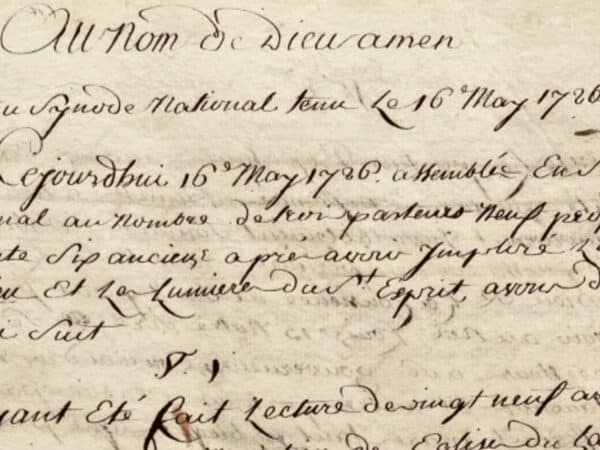 Au Nom de Dieu amen
du Synode National tenu Le 16e May 1726
Cejourdhui 16e May 1726. assemblée, En S
nal au Nombre de trois pasteurs Neuf prop
te Six anciens apres avoir Imploré L
eu Et Les Lumieres du St Esprit, avons d
i Suit
1
yant Eté fait Lecture de vingt neuf ar
Eglise du La